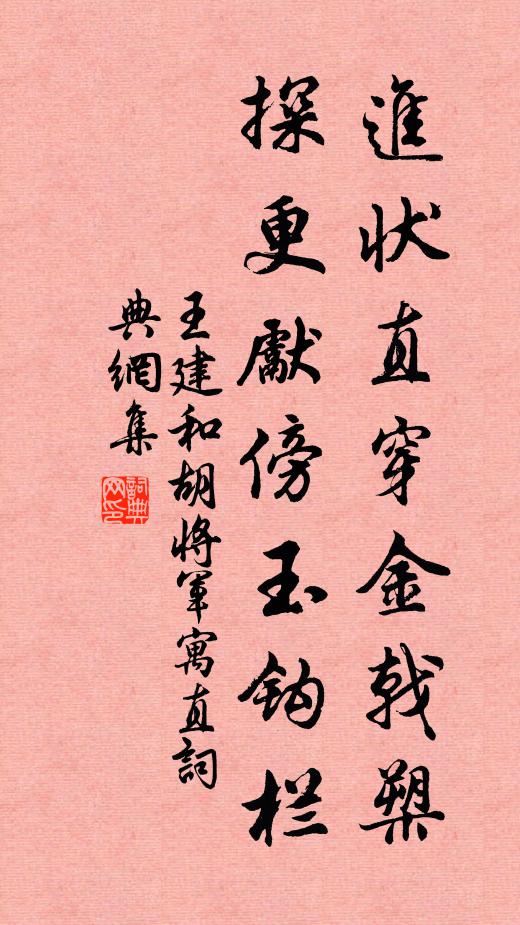 進状直穿金戟槊
探更獻傍玉鈎栏
王建和胡將軍寓直詞
典網集
詞典
网印